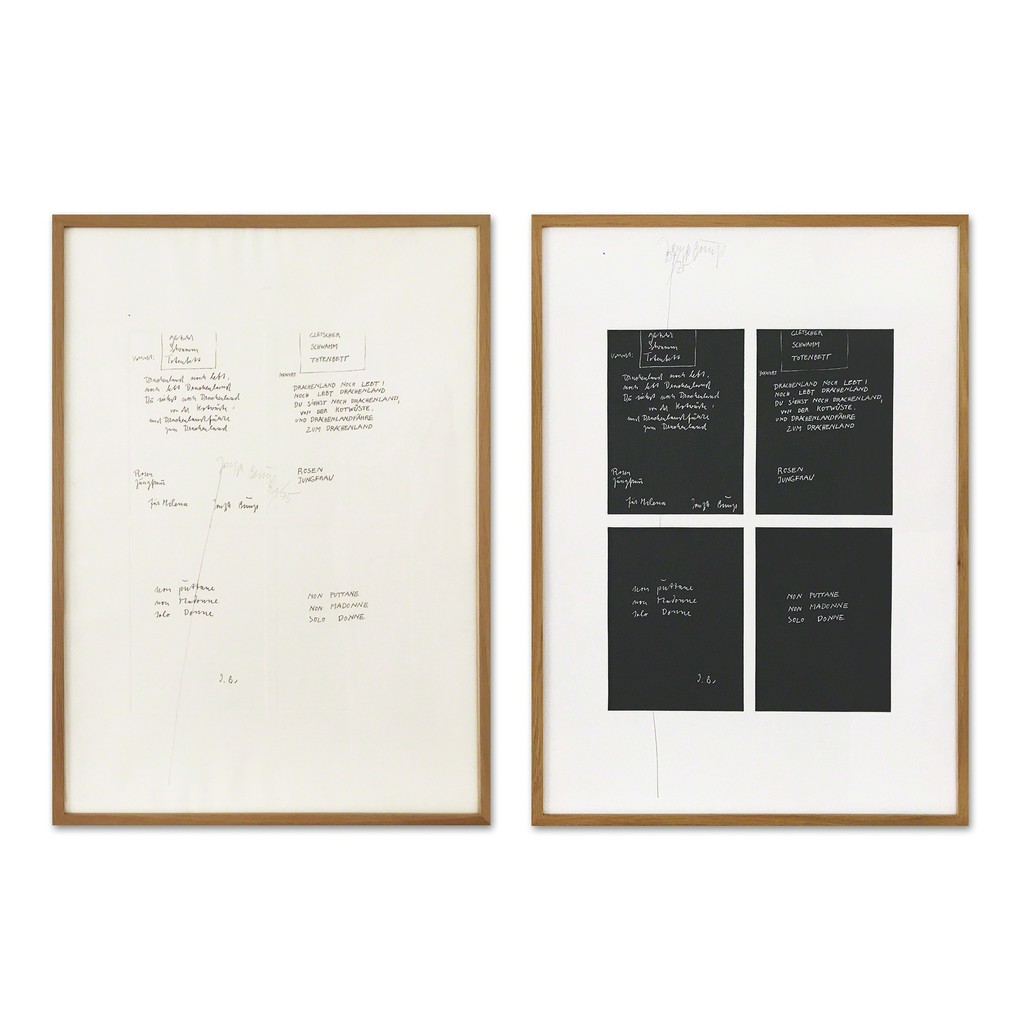 Schwamm
Totenbett
Drachenland noch lebt,
noch lebt Drachenland
Du siehst noch Drachenland
von der Kotwüste,
und Drachenlandfähre
zum Drachenland
Rosen
Jungfrau
für Milena Joseph Beuys
non puttane
non Madonne
solo Donne
J. B.
GLETSCHER
SCHWAMM
TOTENBETT
DRACHENLAND NOCH LEBT!
NOCH LEBT DRACHENLAND
DU SIEHST NOCH DRACHENLAND,
VON DER KOTWÜSTE.
UND DRACHENLANDFÄHRE
ZUM DRACHENLAND
ROSEN
JUNGFRAU
NON PUTTANE
NON MADONNE
SOLO DONNE
Joseph Beuys
Joseph Beuys
Schwamm
Totenbett
Drachenland noch lebt,
noch lebt Drachenland
Du siehst noch Drachenland
von der Kotwüste,
und Drachenlandfähre
zum Drachenland
Rosen
Jungfrau
für Milena Joseph Beuys
GLETSCHER
SCHWAMM
TOTENBETT
DRACHENLAND NOCH LEBT!
NOCH LEBT DRACHENLAND
DU SIEHST NOCH DRACHENLAND,
VON DER KOTWÜSTE.
UND DRACHENLANDFÄHRE
ZUM DRACHENLAND
ROSEN
JUNGFRAU
non puttane
non Madonne
solo Donne
J. B.
NON PUTTANE
NON MADONNE
SOLO DONNE